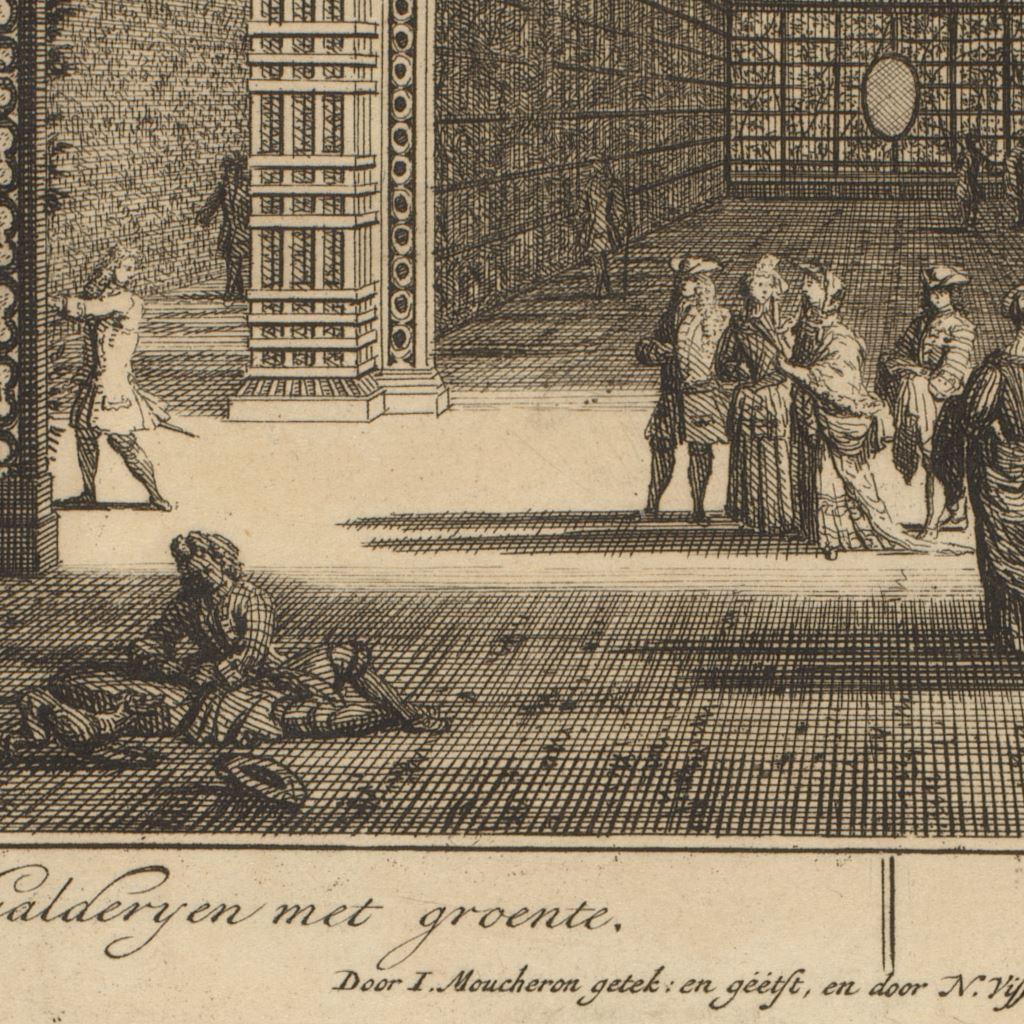 Galderyen met groente.
Door I. Moucheron getek: en geëtst, en door N. Viss